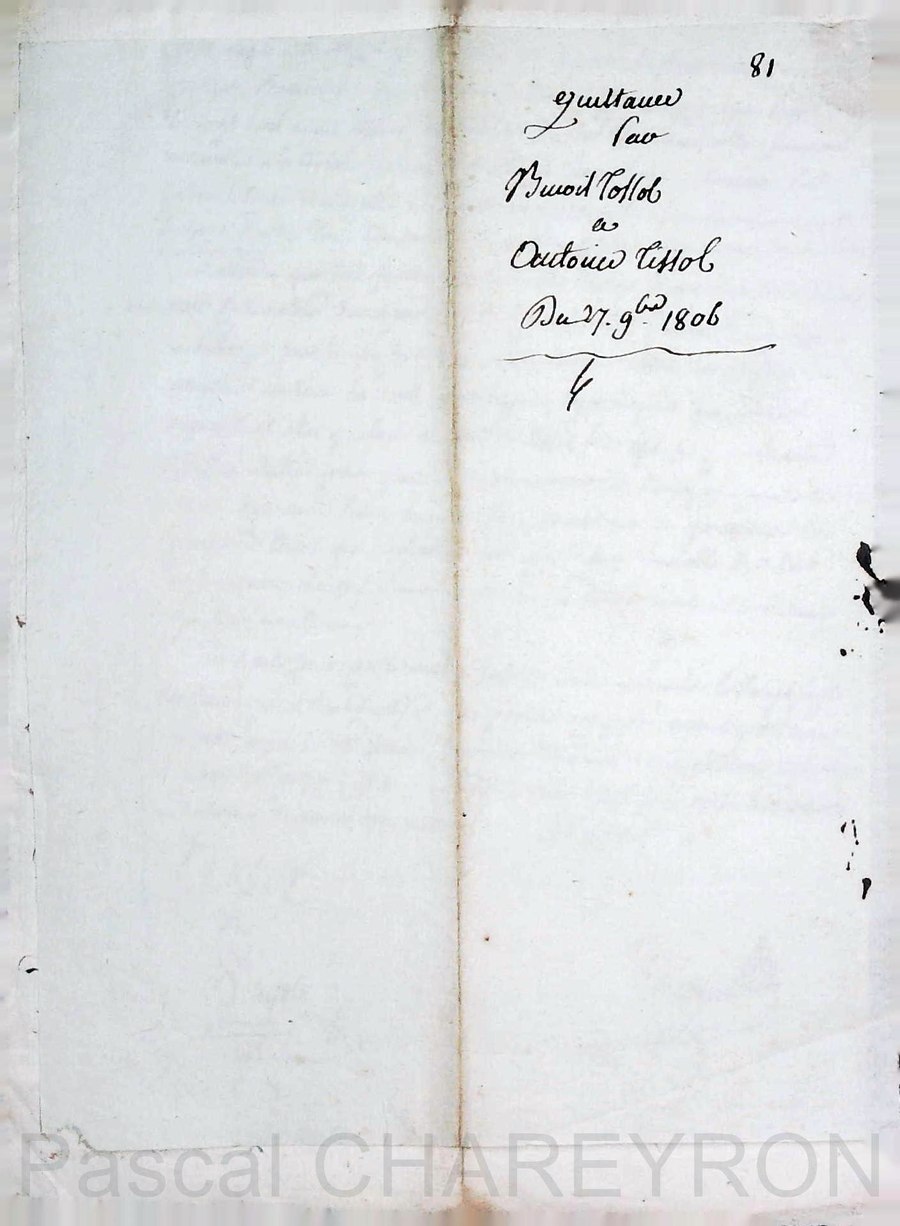 81
quittance
par
Benoit Tissot
a
Antoine Tissot
Du 27. 9bre 1806
Pascal CHAREYRON